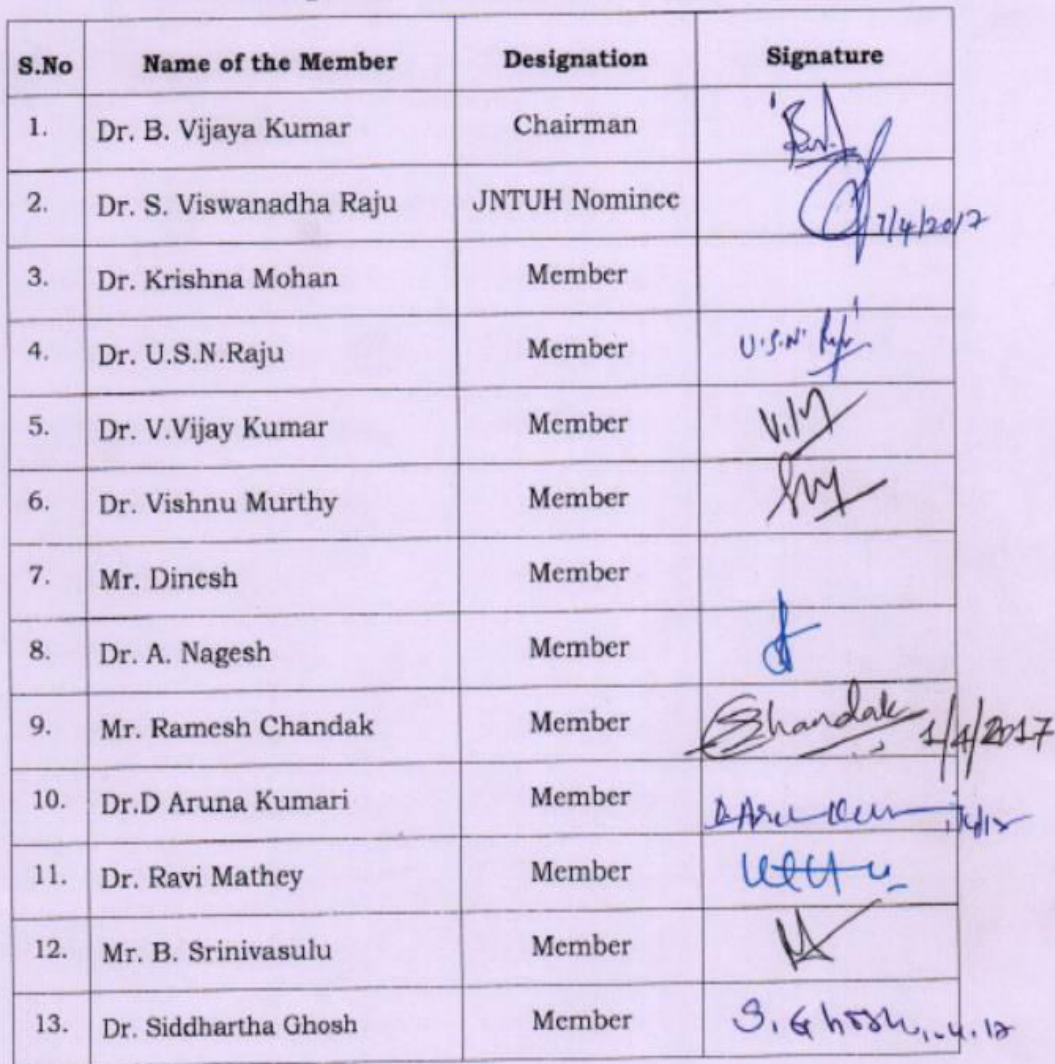 S.No Name of the Member Designation Signature
1. Dr. B. Vijaya Kumar Chairman
2. Dr. S. Viswanadha Raju JNTUH Nominee
3. Dr. Krishna Mohan Member
4. Dr. U.S.N.Raju Member U.S.N. Raju
5. Dr. V.Vijay Kumar Member
6. Dr. Vishnu Murthy Member
7. Mr. Dinesh Member
8. Dr. A. Nagesh Member
9. Mr. Ramesh Chandak Member Chandak 1/4/2017
10. Dr.D Aruna Kumari Member
11. Dr. Ravi Mathey Member
12. Mr. B. Srinivasulu Member
13. Dr. Siddhartha Ghosh Member S. Ghosh